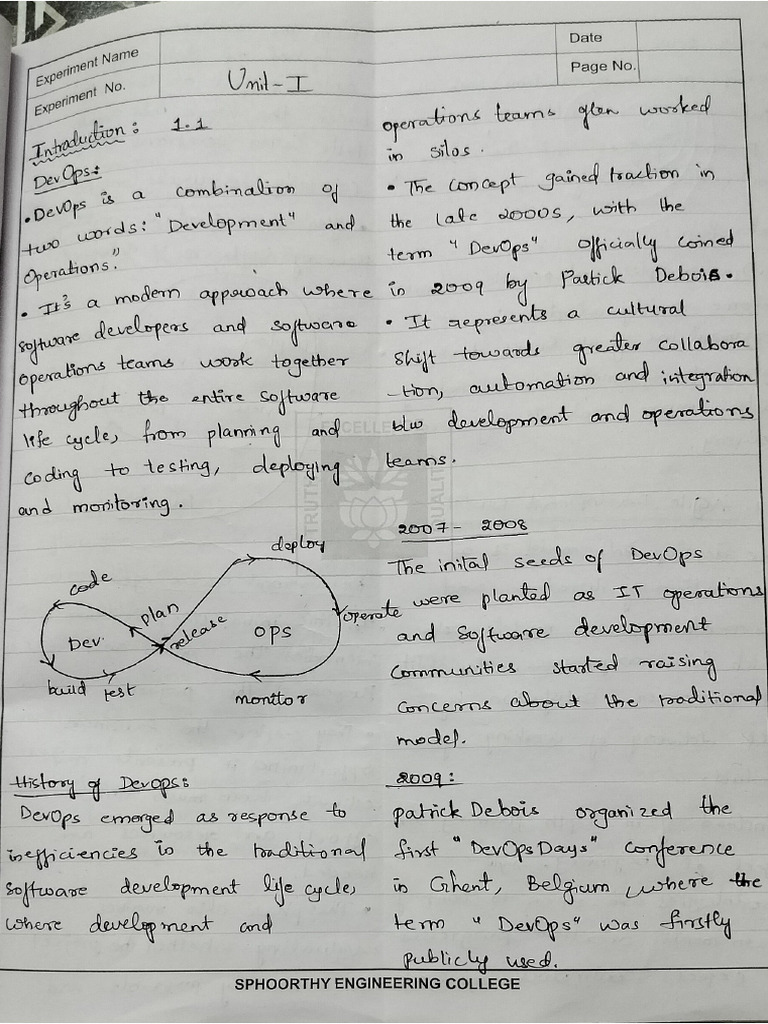 Experiment Name
Date
Experiment No.
Page No.
Unit - I
Introduction: 1.1
DevOps:
• DevOps is a combination of
two words: "Development" and
Operations."
• It's a modern approach where
software developers and software
operations teams work together
throughout the entire software
life cycle, from planning and
coding to testing, deploying
and monitoring.
deploy
code
plan
release
operate
Dev.
OPS
build
test
monitor
History of Devops:
DevOps emerged as response to
inefficiencies in the traditional
software development life cycle,
where development and
operations teams often worked
in silos.
• The concept gained traction in
the late 2000s, with the
term "DevOps" officially coined
in 2009 by Patrick Debois.
• It represents a cultural
shift towards greater collabora
-tion, automation and integration
b/w development and operations
teams.
2007 - 2008
The inital seeds of DevOps
were planted as IT operations
and software development
communities started raising
concerns about the traditional
model.
2009:
patrick Debois organized the
first "DevOpsDays" conference
in Ghent, Belgium, where the
term "DevOps" was firstly
publicly used.
SPHOORTHY ENGINEERING COLLEGE